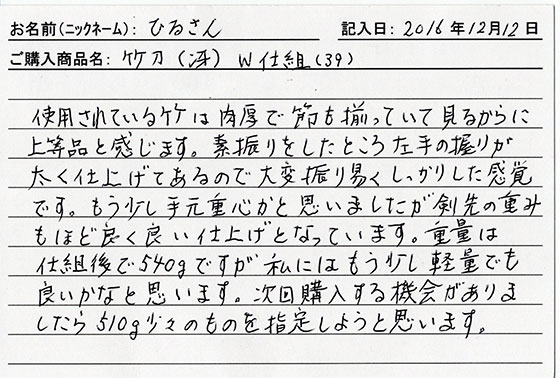 お名前(ニックネーム): ひるさん 記入日: 2016年12月12日
ご購入商品名: 竹刀(冴) W仕組(39)
使用されている竹は肉厚で節も揃っていて見るからに
上等品と感じます。素振りをしたところ左手の握りが
太く仕上げてあるので大変振り易くしっかりした感覚
です。もう少し手元重心かと思いましたが剣先の重み
もほど良く良い仕上げとなっています。重量は
仕組後で540gですが私にはもう少し軽量でも
良いかなと思います。次回購入する機会がありま
したら510g少々のものを指定しようと思います。